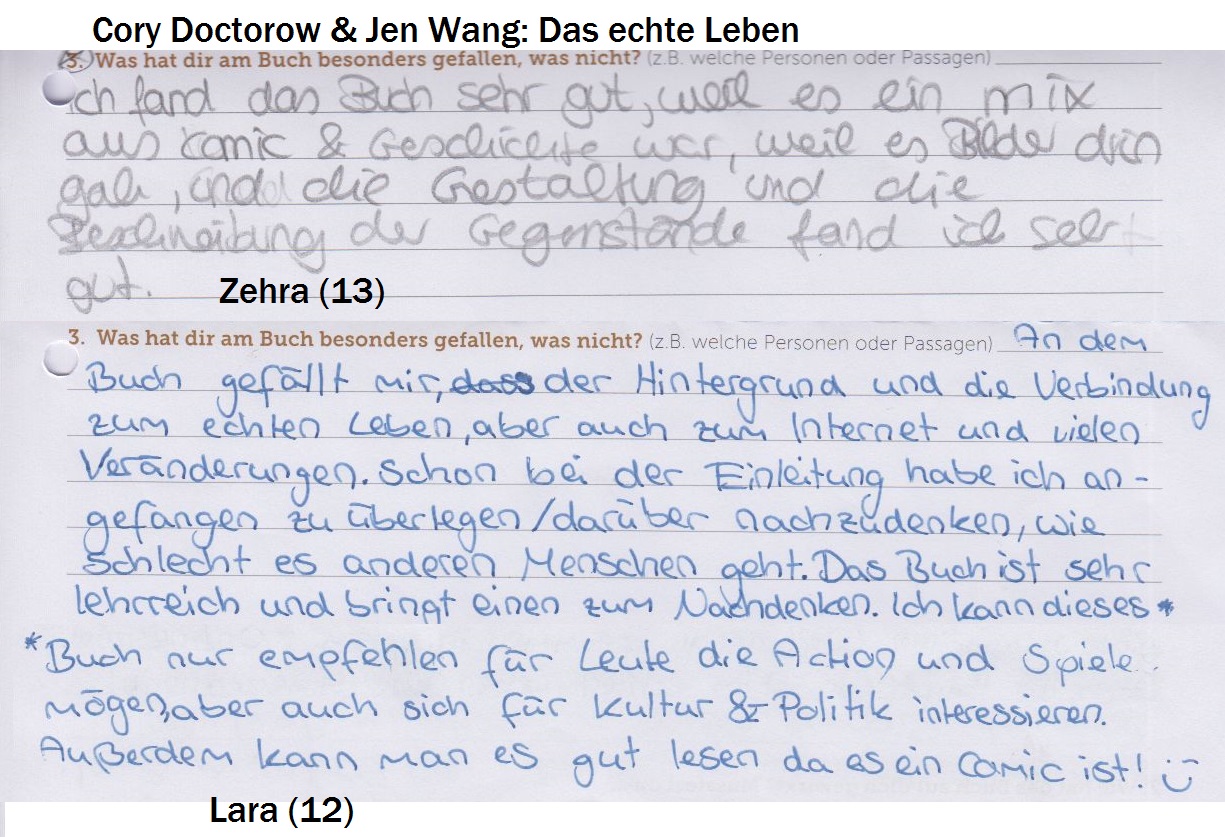 Cory Doctorow & Jen Wang: Das echte Leben
3. Was hat dir am Buch besonders gefallen, was nicht? (z.B. welche Personen oder Passagen)
Ich fand das Buch sehr gut, weil es ein mix
aus Comic & Geschichte war, weil es Bilder drin
gab, und die Gestaltung und die
Beschreibung der Gegenstände fand ich sehr
gut.
Zehra (13)
3. Was hat dir am Buch besonders gefallen, was nicht? (z.B. welche Personen oder Passagen) An dem
Buch gefällt mir, dass der Hintergrund und die Verbindung
zum echten Leben, aber auch zum Internet und vielen
Veränderungen. Schon bei der Einleitung habe ich an-
gefangen zu überlegen/darüber nachzudenken, wie
schlecht es anderen Menschen geht. Das Buch ist sehr
lehrreich und bringt einen zum Nachdenken. Ich kann dieses *
* Buch nur empfehlen für Leute die Action und Spiele
mögen, aber auch sich für Kultur & Politik interessieren.
Außerdem kann man es gut lesen da es ein Comic ist! :)
Lara (12)